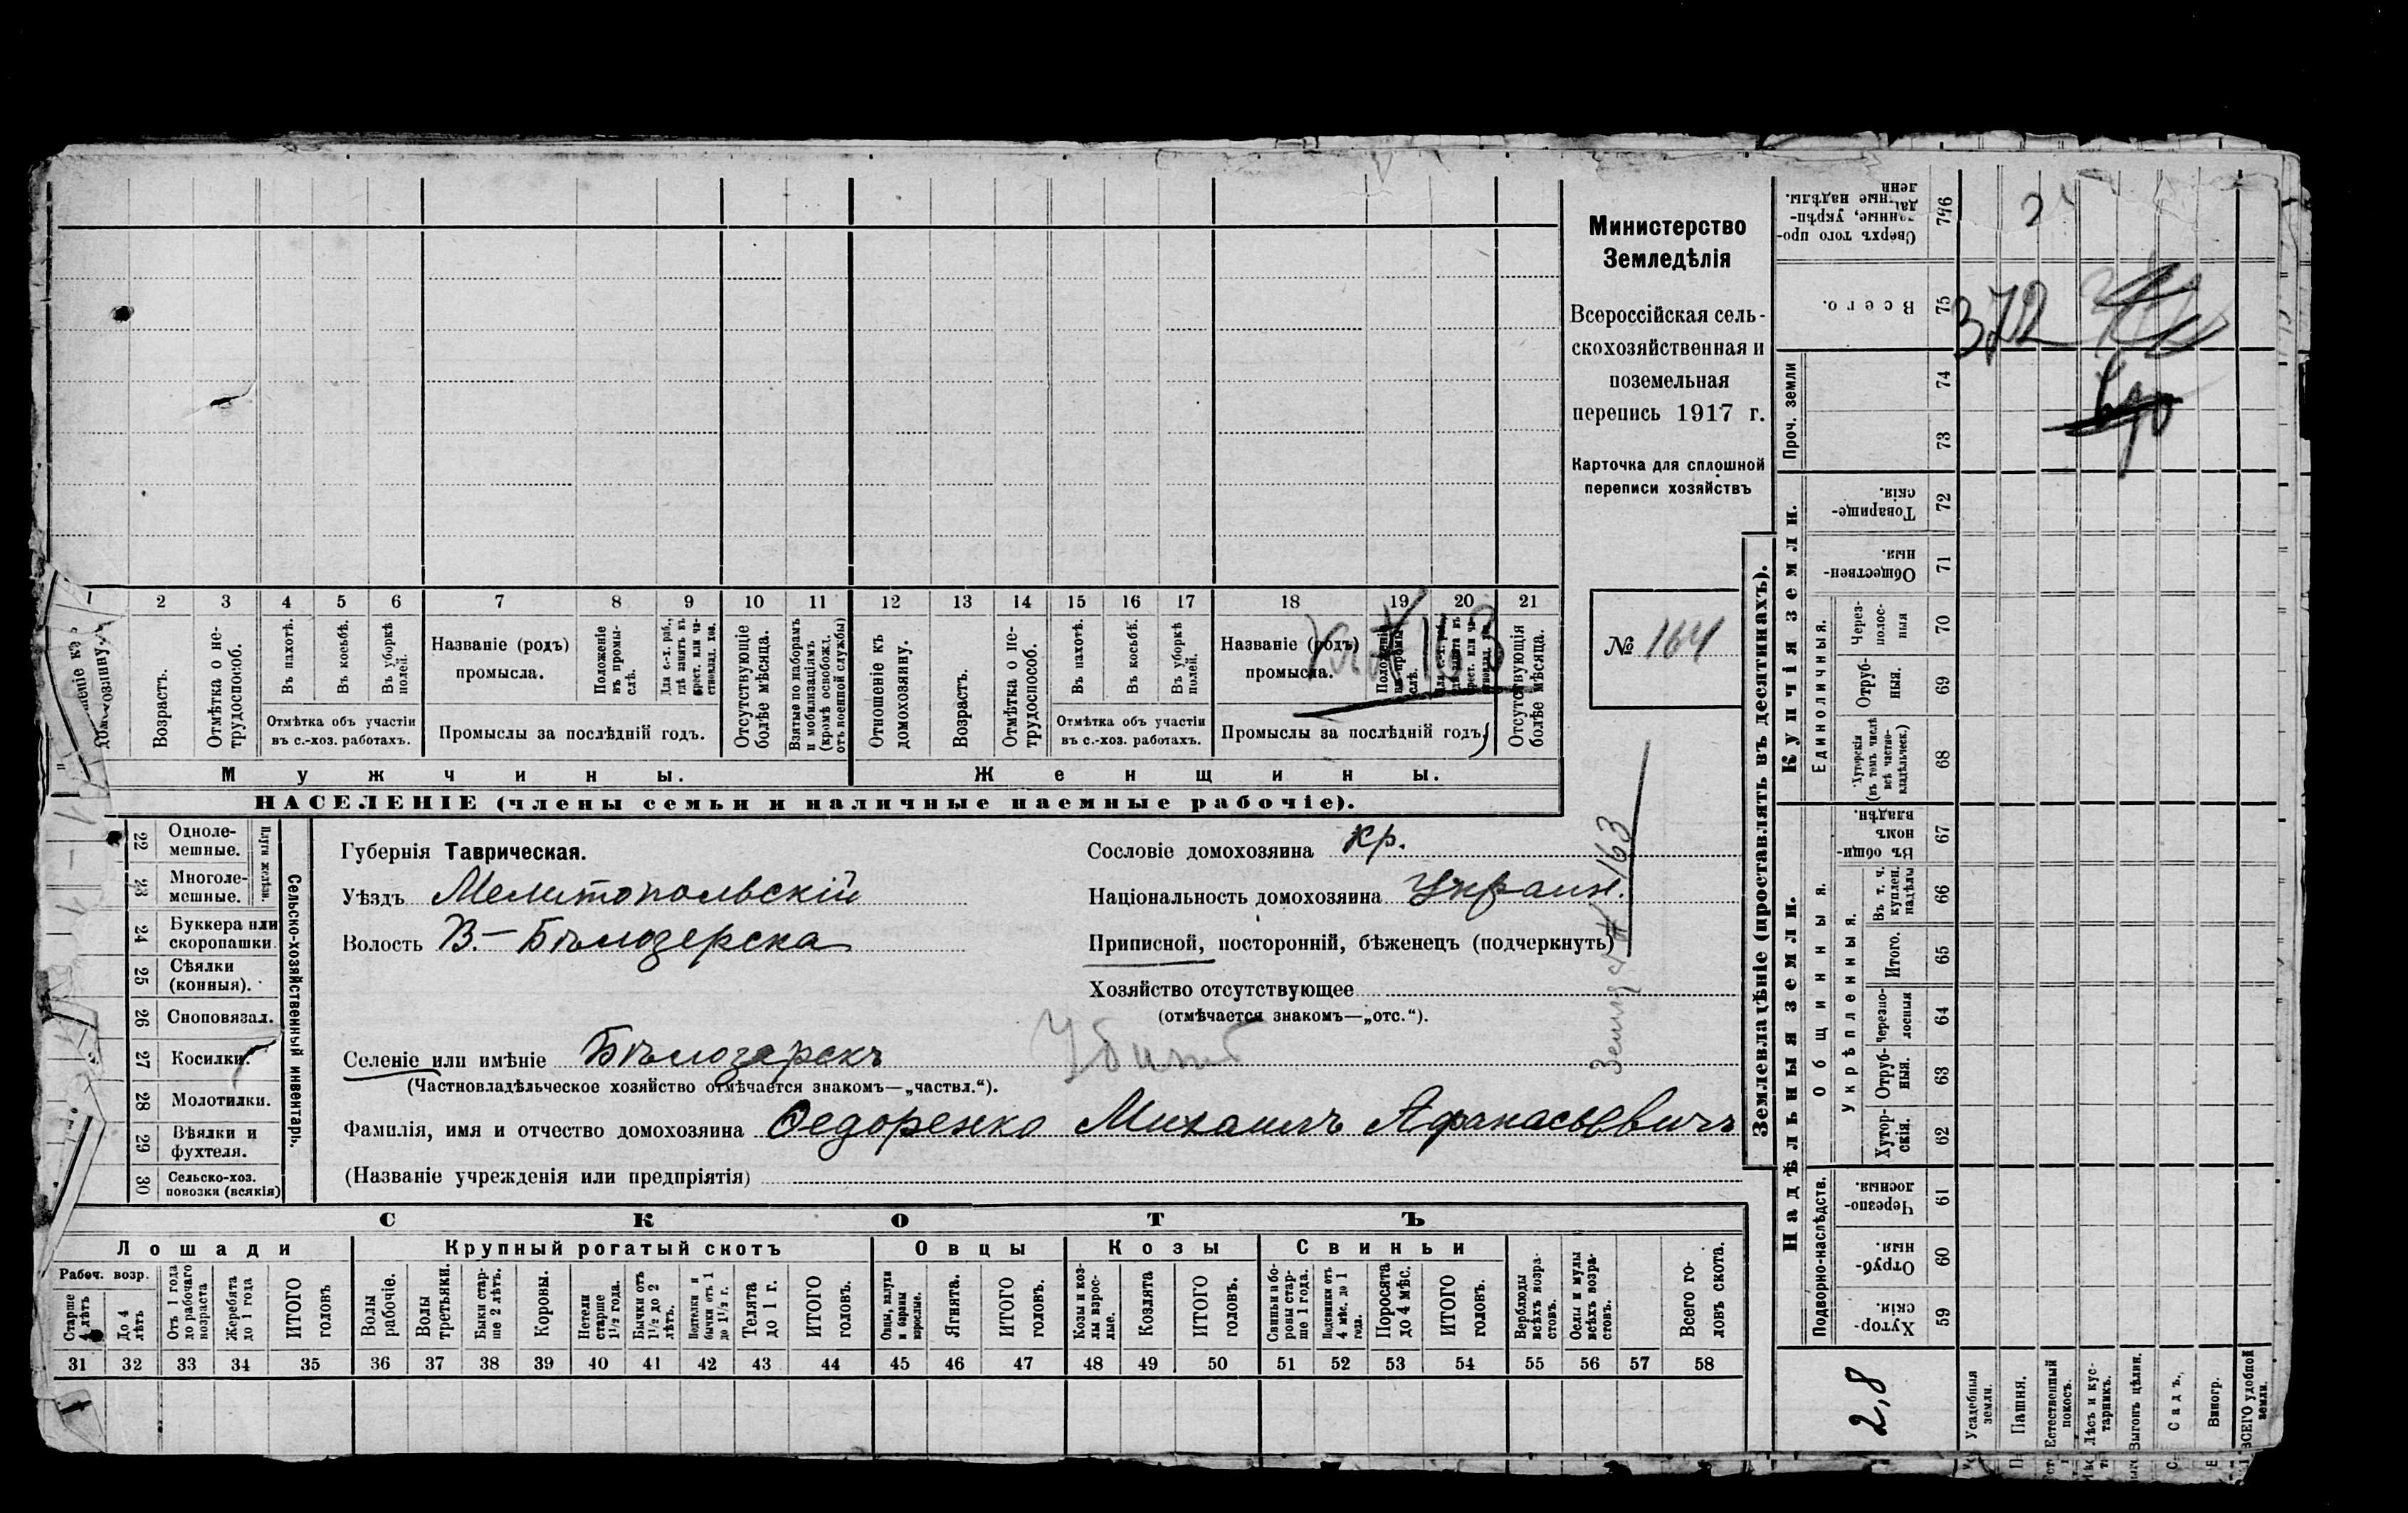 Министерство
Земледѣлія
Всероссійская сель-
скохозяйственная и
поземельная
перепись 1917 г.
Карточка для сплошной
переписи хозяйствъ
№ 164
1 2 3 4 5 6 7 8 9 10 11 12 13 14 15 16 17 18 19 20 21
домохозяину.
Возрастъ.
Отмѣтка о не-
трудоспособ.
Въ пахотѣ.
Въ косьбѣ.
Въ уборкѣ
полей.
Отмѣтка объ участіи
въ с.-хоз. работахъ.
Названіе (родъ)
промысла.
Положеніе
въ промы-
слѣ.
Для с.-х. раб.,
гдѣ занятъ въ
крест. или ча-
стновлад. хоз.
Промыслы за послѣдній годъ.
Отсутствующіе
болѣе мѣсяца.
Взятые по наборамъ
и мобилизаціямъ
(кромѣ освобожд.
отъ военной службы)
Отношеніе къ
домохозяину.
Возрастъ.
Отмѣтка о не-
трудоспособ.
Въ пахотѣ.
Въ косьбѣ.
Въ уборкѣ
полей.
Отмѣтка объ участіи
въ с.-хоз. работахъ.
Названіе (родъ)
промысла.
Промыслы за послѣдній годъ.
Отсутствующія
болѣе мѣсяца.
Мужчины.
Женщины.
НАСЕЛЕНІЕ (члены семьи и наличные наемные рабочіе).
Сельско-хозяйственный инвентарь.
Плуги желѣзн.
22 Одноле-
мешные.
23 Многоле-
мешные.
24 Буккера или
скоропашки
25 Сѣялки
(конныя).
26 Сноповязал.
27 Косилки.
28 Молотилки.
29 Вѣялки и
фухтеля.
30 Сельско-хоз.
повозки (всякія)
Губернія Таврическая.
Уѣздъ Мелитопольскій
Волость В.-Бѣлозерска
Сословіе домохозяина кр.
Національность домохозяина Украин.
Приписной, посторонній, бѣженецъ (подчеркнуть)
Хозяйство отсутствующее
(отмѣчается знакомъ—„отс.“).
Земля 163
Селеніе или имѣніе Бѣлозерскъ
Убитъ
(Частновладѣльческое хозяйство отмѣчается знакомъ—„частвл.“).
Фамилія, имя и отчество домохозяина Федоренко Михаилъ Афанасьевичъ
(Названіе учрежденія или предпріятія)
СКОТЪ
Лошади
Крупный рогатый скотъ
Овцы
Козы
Свиньи
Рабоч. возр.
Старше
4 лѣтъ
До 4
лѣтъ
Отъ 1 года
до рабочаго
возраста
Жеребята
до 1 года
ИТОГО
головъ
Волы
рабочіе.
Волы
третьяки.
Быки стар-
ше 2 лѣтъ.
Коровы.
Нетели
старше
1½ года.
Бычки отъ
1½ до 2
лѣтъ.
Подтелки и
бычки отъ 1
до 1½ г.
Телята
до 1 г.
ИТОГО
головъ.
Овцы, валухи
и бараны
взрослые.
Ягнята.
ИТОГО
головъ.
Козы и коз-
лы взрос-
лые.
Козлята
ИТОГО
головъ.
Свиньи и бо-
ровы стар-
ше 1 года.
Подсвинки отъ
4 мѣс. до 1
года.
Поросята
до 4 мѣс.
ИТОГО
головъ.
Верблюды
всѣхъ возра-
стовъ.
Ослы и мулы
всѣхъ возра-
стовъ.
Всего го-
ловъ скота.
31 32 33 34 35 36 37 38 39 40 41 42 43 44 45 46 47 48 49 50 51 52 53 54 55 56 57 58
Землевладѣніе (проставлять въ десятинахъ).
Надѣльныя земли.
Купчія земли.
Проч. земли
Подворно-наслѣдств.
Общинныя.
Укрѣпленныя.
Единоличныя.
59 Хутор-
скія.
60 Отруб-
ныя.
61 Черезпо-
лосныя.
62 Хутор-
скія.
63 Отруб-
ныя.
64 Черезпо-
лосныя
65 Итого.
66 Въ т. ч.
куплен.
надѣлы
67 Въ общи-
номъ
владѣн.
68 Хуторскія
(въ томъ числѣ
всѣ частно-
владѣльческ.)
69 Отруб-
ныя.
70 Через-
полос-
ныя
71 Обществен-
ныя.
72 Товарище-
скія.
73
74
75 Всего.
372
76 Сверхъ того про-
данные, укрѣп-
ленные надѣлы.
2,8
Усадебныя
земли.
Пашня.
Естественный
покосъ.
Лѣсъ и кус-
тарникъ.
Выгонъ цѣлин.
Садъ.
Виногр.
ВСЕГО удобной
земли.